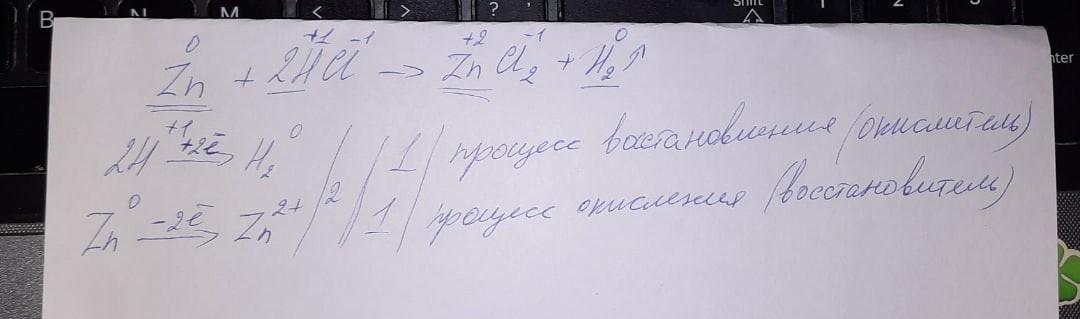 B N M < > ? , Shift 1 2 3
nter
0 +1 -1 +2 -1 0
Zn + 2HCl → ZnCl₂ + H₂↑
2H⁺¹ +2ē → H₂⁰ | 2 | 1 | процесс восстановления (окислитель)
Zn⁰ -2ē → Zn²⁺ | 1 | процесс окисления (восстановитель)